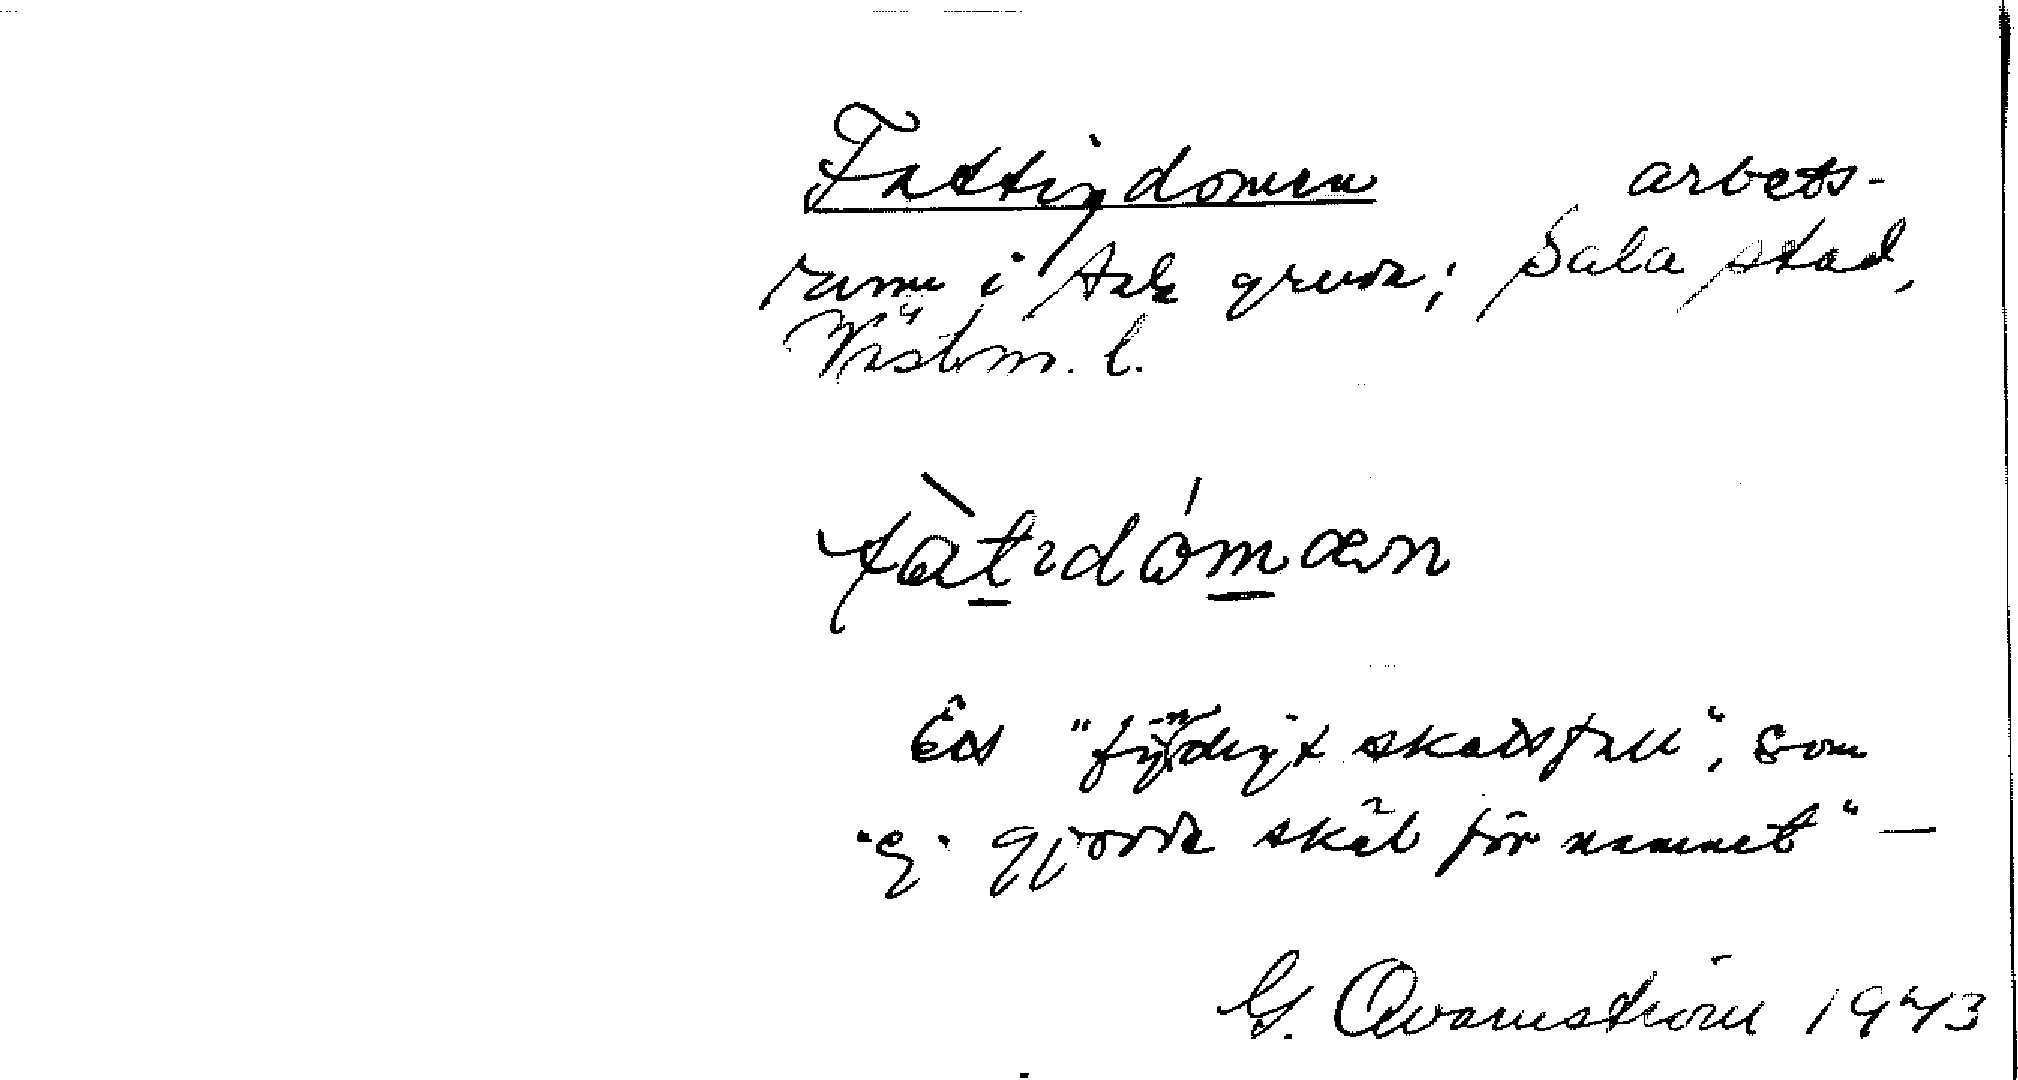 Fattigdomen arbets-
rum i Sala gruva; Sala stad,
Västm. l.
fàtidómæn
Ett "fyndigt skatsfall", som
"ej gjorde skäl för namnet" —
G. Qvarnström 1943